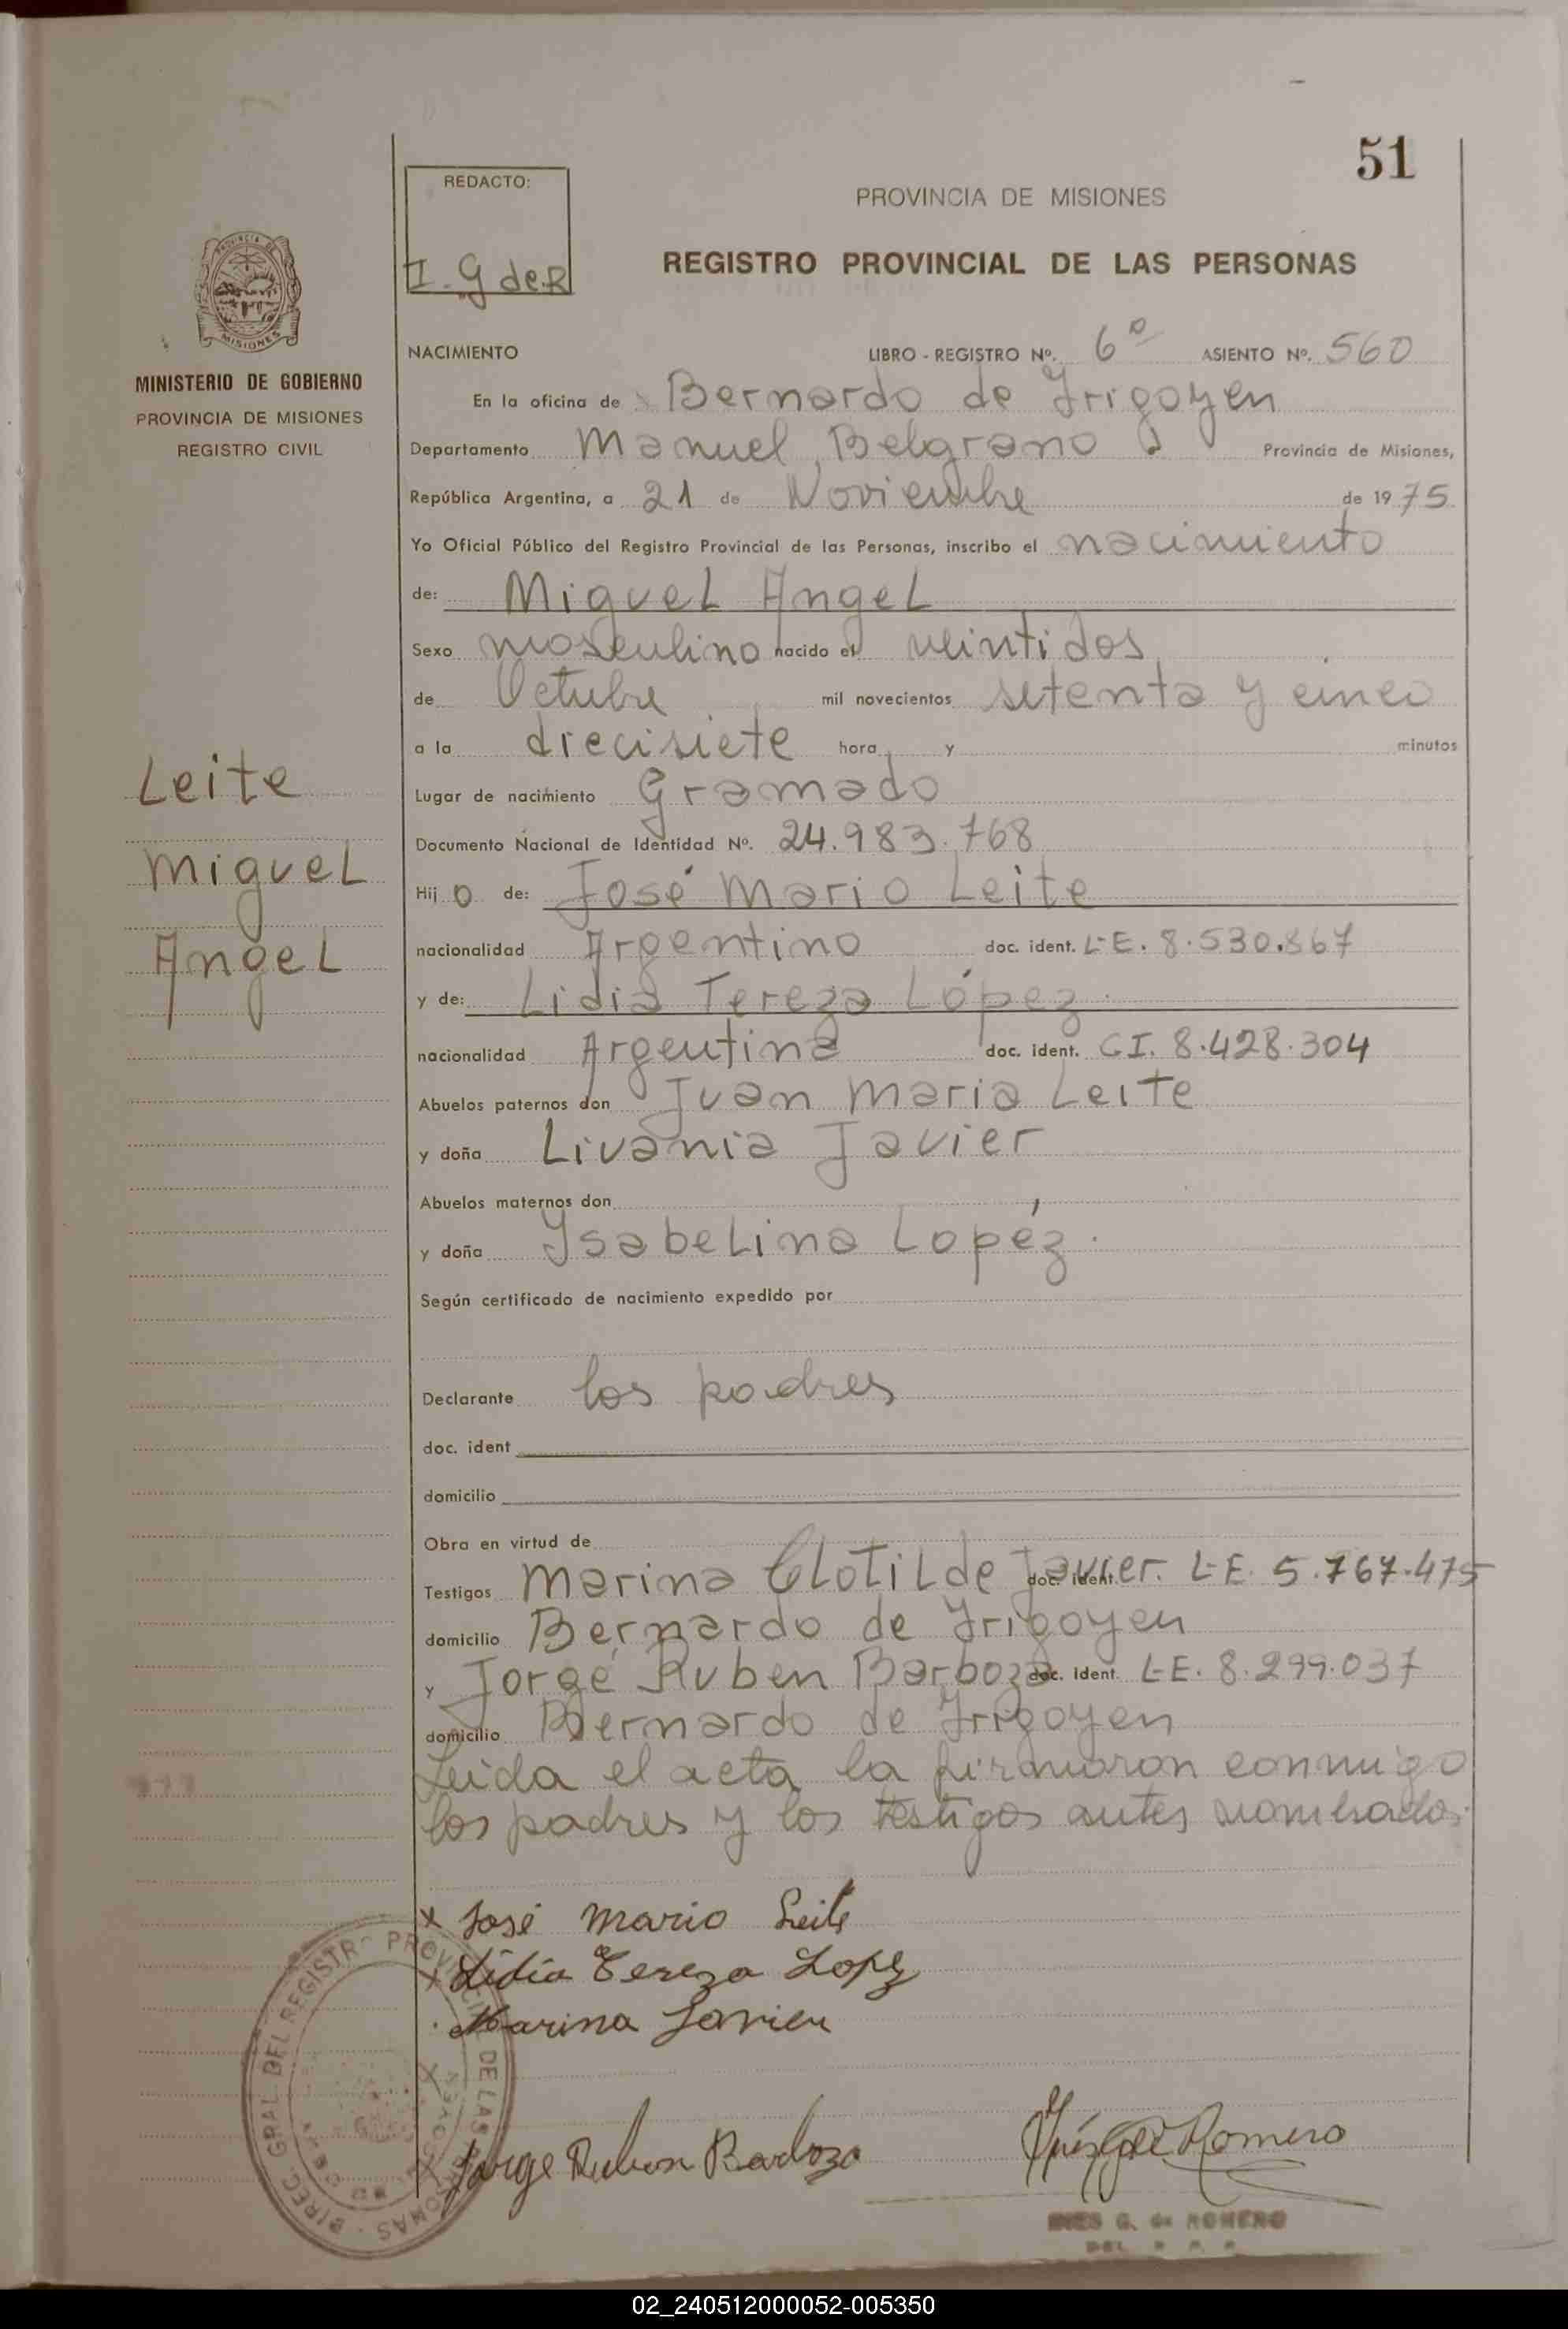 51
REDACTO:
I. G de R
PROVINCIA DE MISIONES
REGISTRO PROVINCIAL DE LAS PERSONAS
PROVINCIA DE
MISIONES
MINISTERIO DE GOBIERNO
PROVINCIA DE MISIONES
REGISTRO CIVIL
Leite
Miguel
Angel
NACIMIENTO LIBRO - REGISTRO Nº. 6º ASIENTO Nº. 560
En la oficina de Bernardo de Irigoyen
Departamento Manuel Belgrano Provincia de Misiones,
República Argentina, a 21 de Noviembre de 1975
Yo Oficial Público del Registro Provincial de las Personas, inscribo el nacimiento
de: Miguel Angel
Sexo masculino nacido el veintidos
de Octubre mil novecientos setenta y cinco
a la diecisiete hora y minutos
Lugar de nacimiento Gramado
Documento Nacional de Identidad Nº. 24.983.768
Hij o de: José Mario Leite
nacionalidad Argentino doc. ident. L-E. 8.530.867
y de: Lidia Tereza López.
nacionalidad Argentina doc. ident. C.I. 8.428.304
Abuelos paternos don Juan Maria Leite
y doña Livania Javier
Abuelos maternos don
y doña Ysabelina Lopéz.
Según certificado de nacimiento expedido por
Declarante los padres
doc. ident
domicilio
Obra en virtud de
Testigos Marina Clotilde Javier. doc. ident. L-E. 5.767.475
domicilio Bernardo de Irigoyen
y Jorge Ruben Barboza doc. ident. L-E. 8.299.037
domicilio Bernardo de Irigoyen
Leida el acta la firmaron conmigo
los padres y los testigos antes nombrados.
x José Mario Leite
x Lidia Tereza Lopez
Marina Javier
Jorge Ruben Barboza
Inés G de Romero
INES G. de ROMERO
DIREC. GRAL. DEL REGISTRO PROVINCIAL DE LAS PERSONAS
02_240512000052-005350